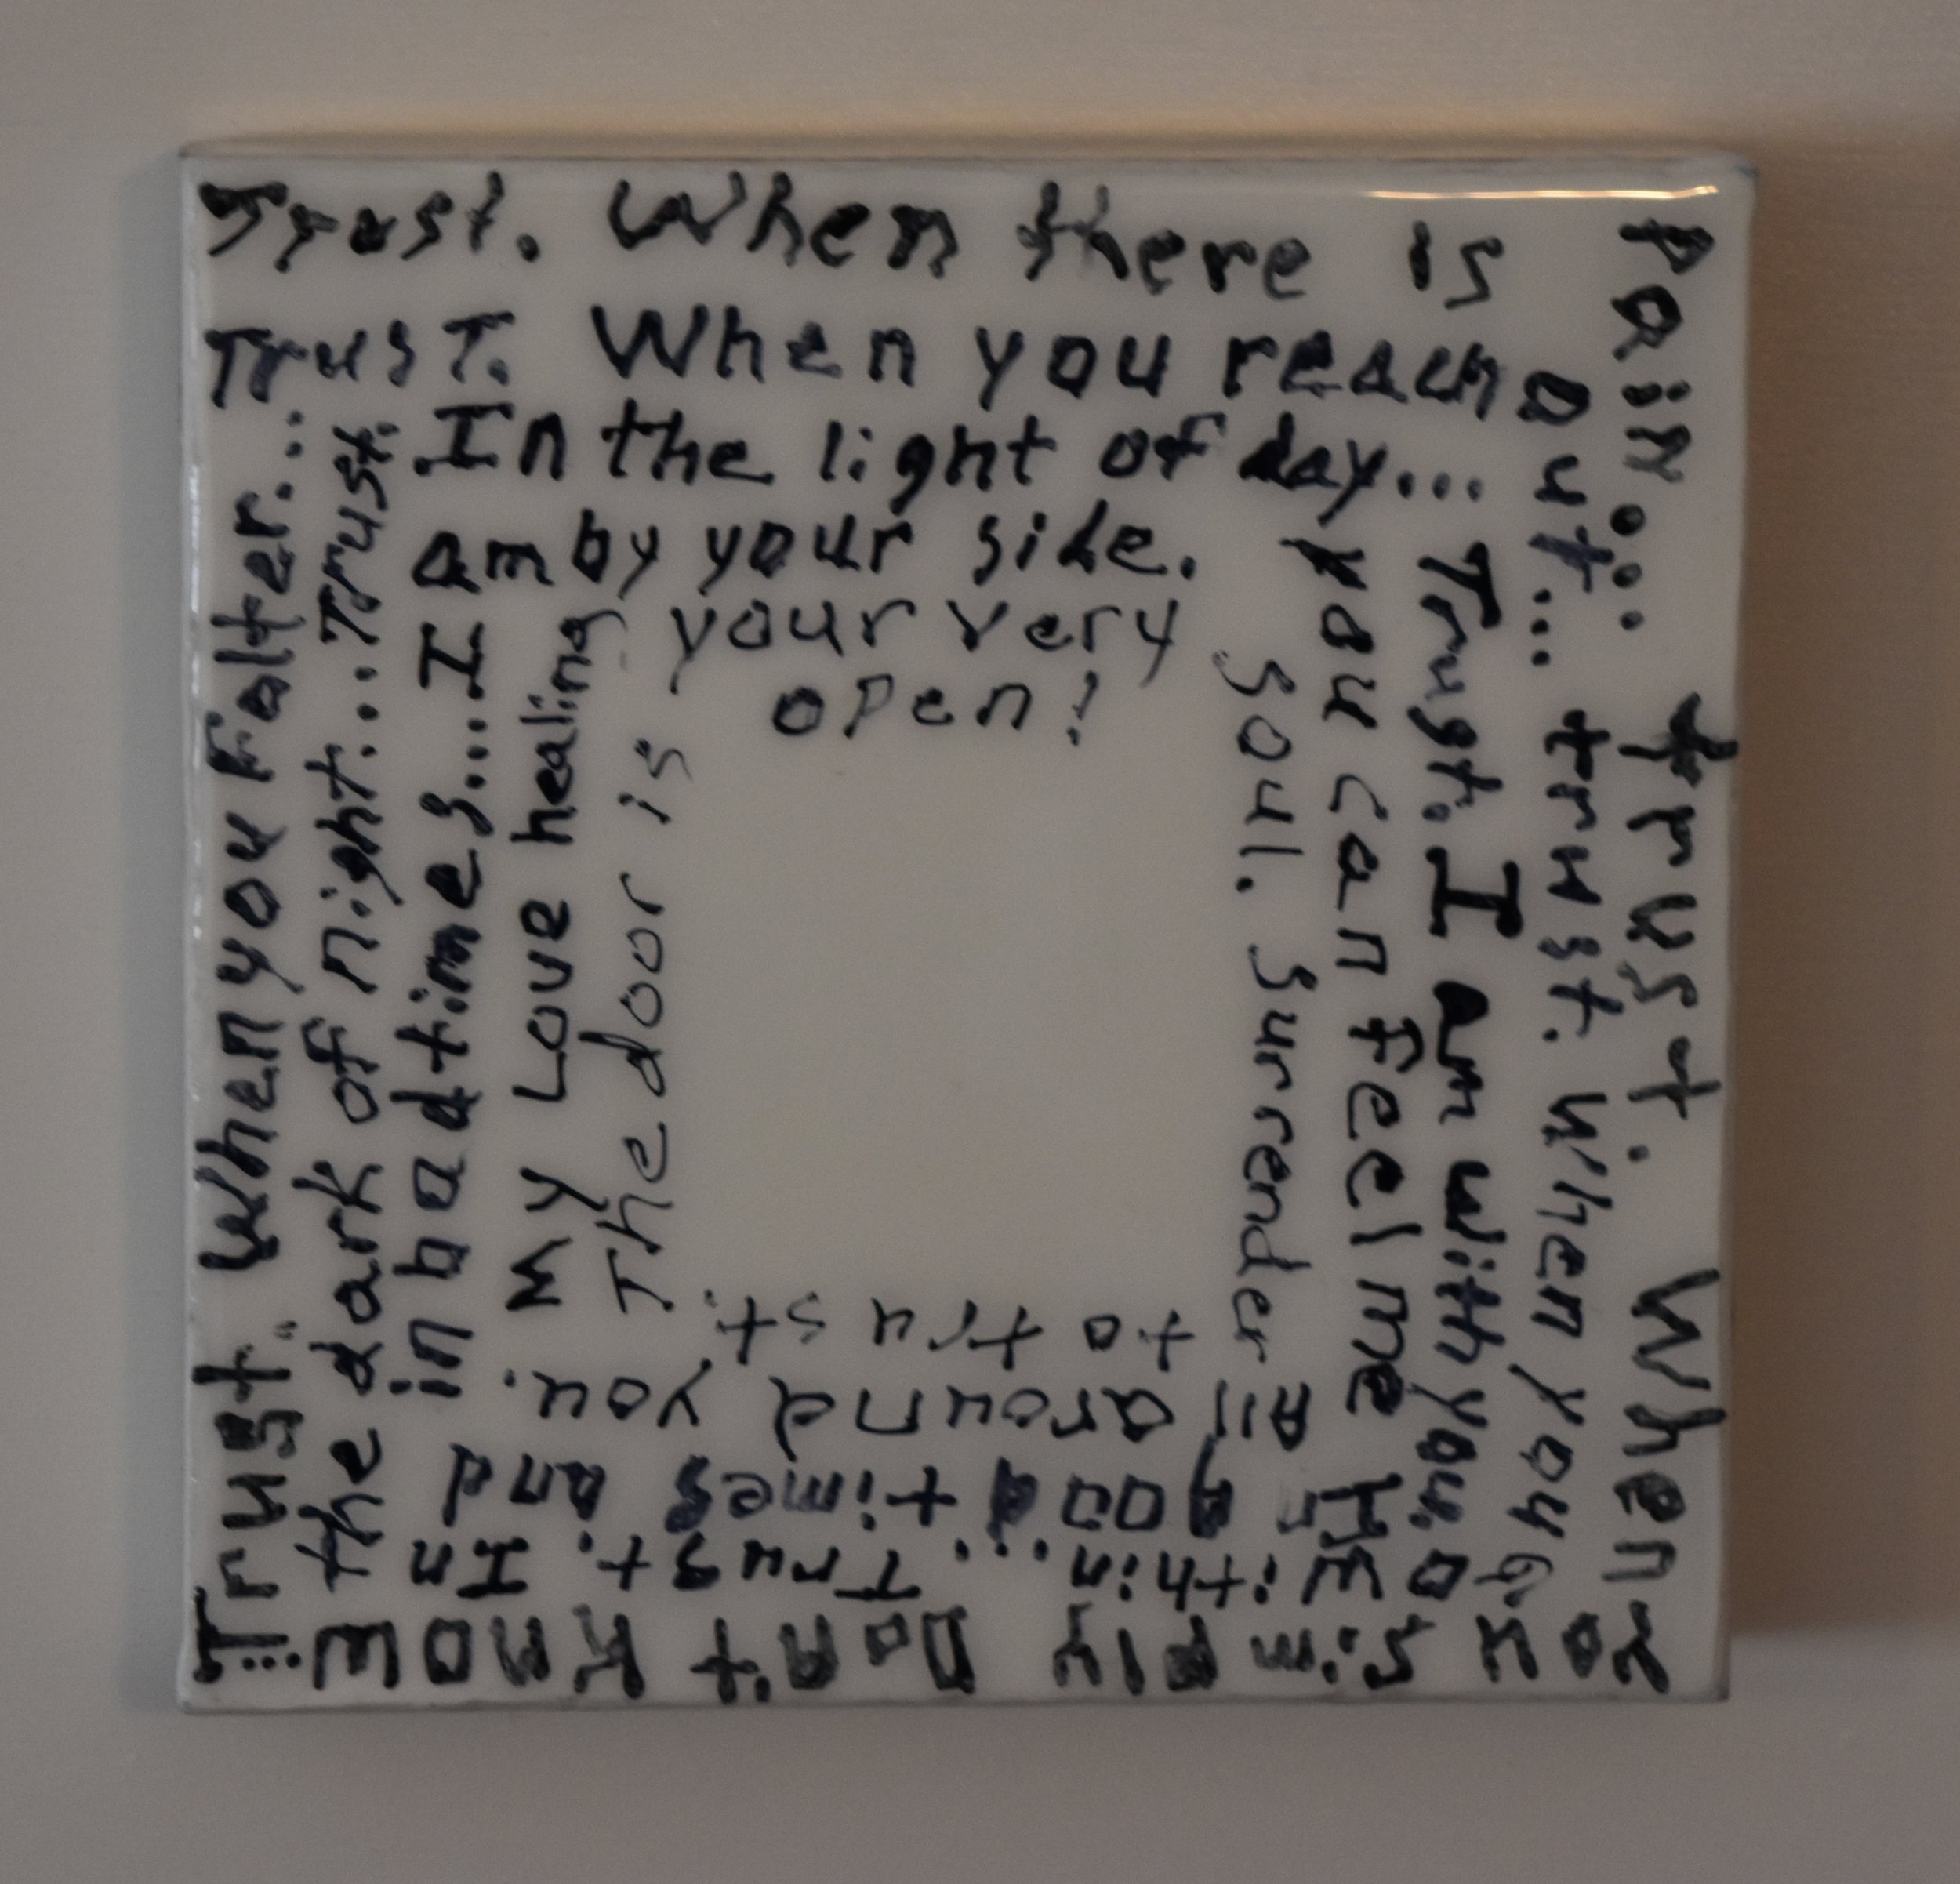 Trust. When there is
pain... trust. When
you simply Don't Know...
Trust. When you Falter...
Trust. When you reach
out... trust. When you go
within... Trust. In
the dark of night... Trust.
In the light of day...
Trust. I am with you.
In good times and
in bad times... I
am by your side.
you can feel me
All around you.
My Love healing
your very
soul. Surrender
to trust.
The door is
open!